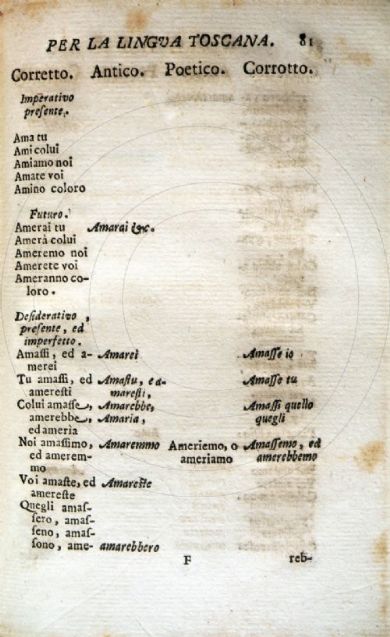 PER LA LINGVA TOSCANA. 81
Corretto. Antico. Poetico. Corrotto.
Imperativo
presente.
Ama tu
Ami colui
Amiamo noi
Amate voi
Amino coloro
Futuro.
Amerai tu Amarai &c.
Amerà colui
Ameremo noi
Amerete voi
Ameranno co-
loro.
Desiderativo,
presente, ed
imperfetto.
Amassi, ed a- Amarei Amasse io
merei
Tu amassi, ed Amastu, e a- Amasse tu
ameresti maresti,
Colui amasse, Amarebbe, Amassi quello
amerebbe, Amaria, quegli
ed ameria
Noi amassimo, Amaremmo Ameriemo, o Amassemo, ed
ed amerem- ameriamo amerebbemo
mo
Voi amaste, ed Amareste
amereste
Quegli amas-
sero, amas-
seno, amas-
sono, ame- amarebbero
F reb-